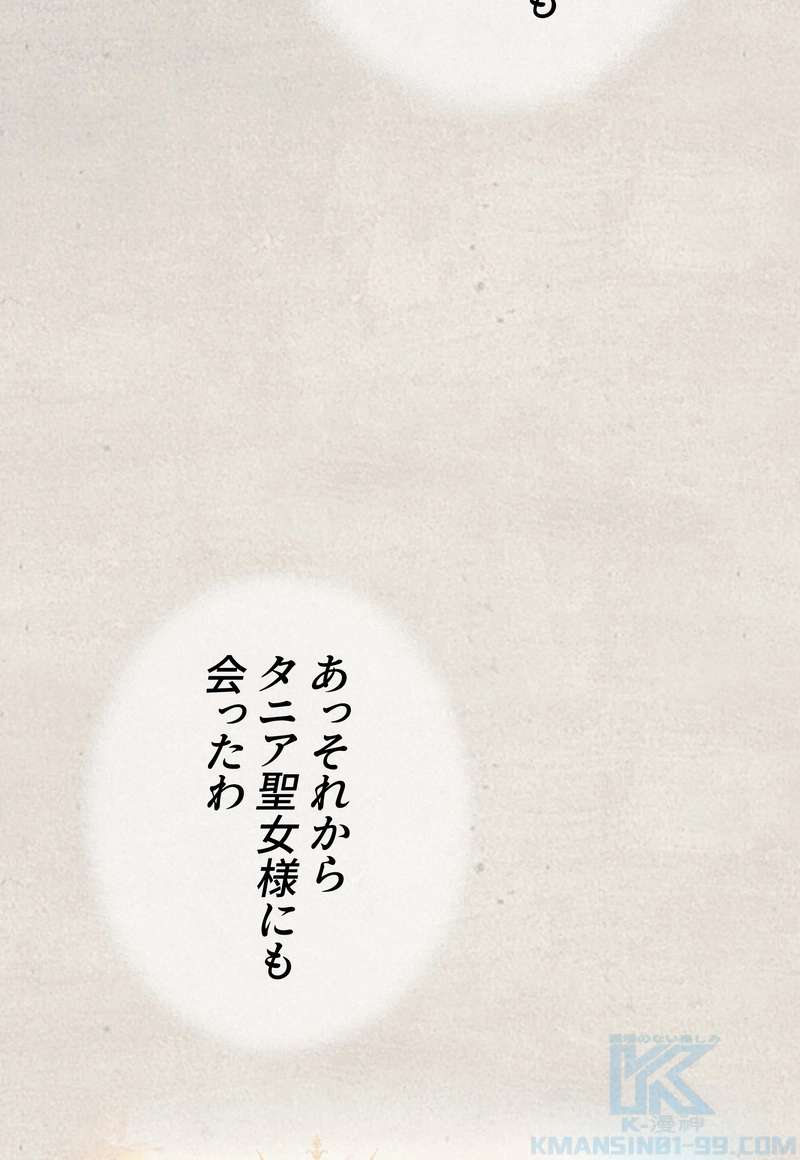 も
あっそれから
タニア聖女様にも
会ったわ
K-漫神
KMANSIN01-99.COM